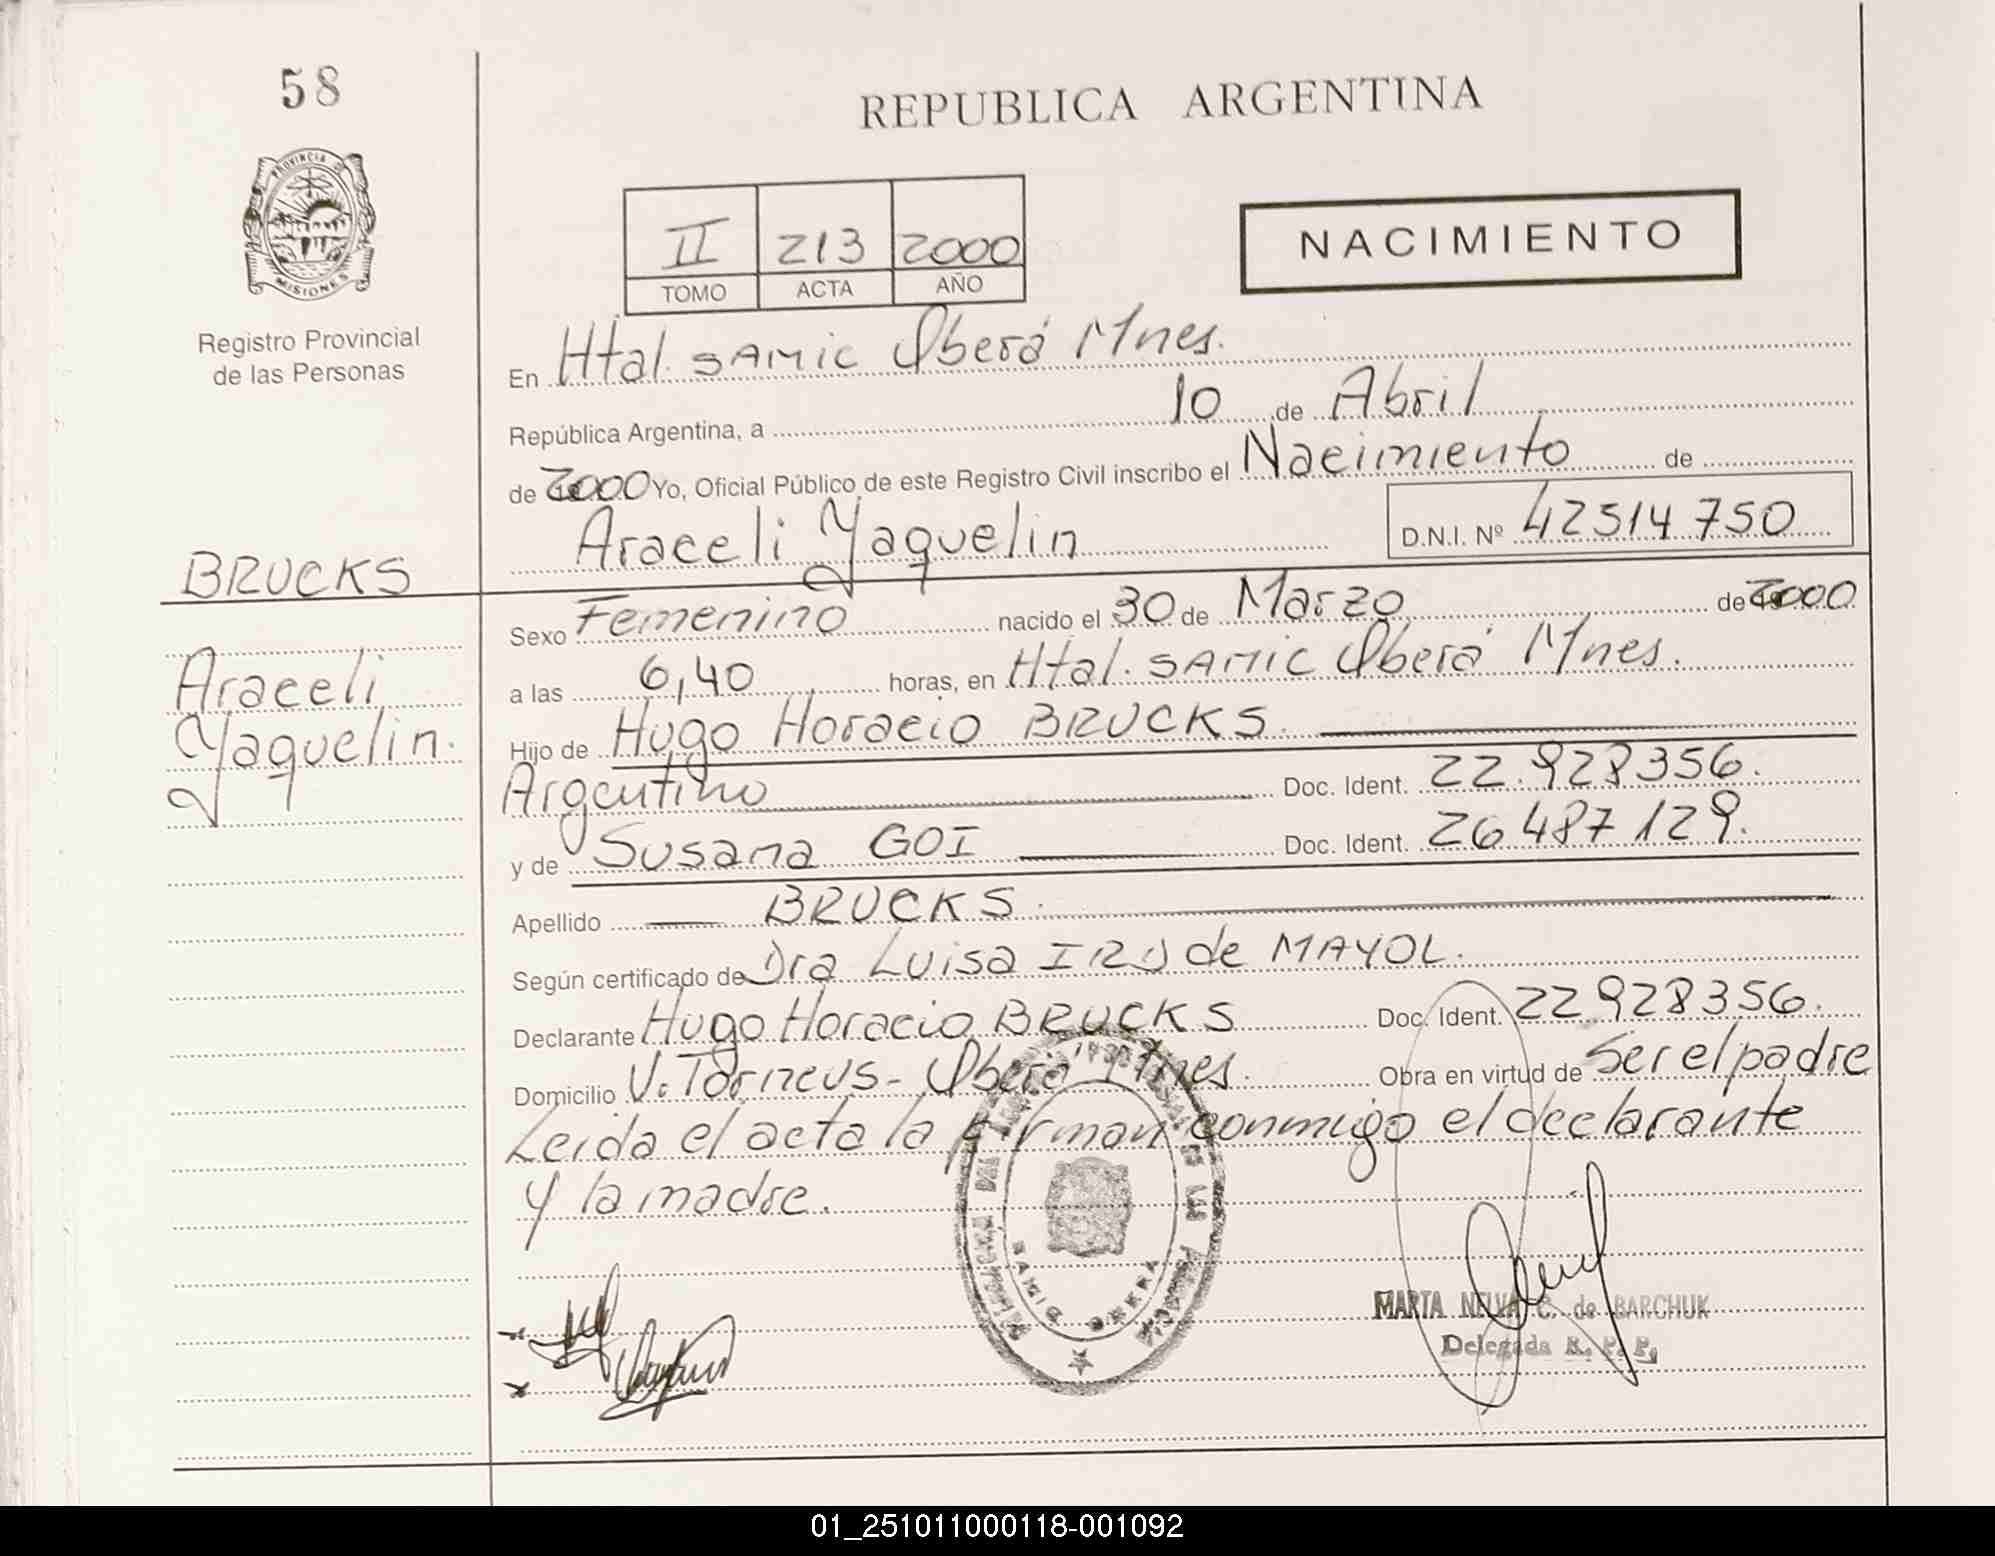 58
REPUBLICA ARGENTINA
PROVINCIA DE
MISIONES
II 213 2000
TOMO ACTA AÑO
NACIMIENTO
Registro Provincial
de las Personas
En Htal. SAMIC Oberá Mnes.
República Argentina, a 10 de Abril
de 2000 Yo, Oficial Público de este Registro Civil inscribo el Nacimiento de
Araceli Yaquelin D.N.I. Nº 42514750
BRUCKS
Araceli
Yaquelin.
Sexo Femenino nacido el 30 de Marzo de 2000
a las 6,40 horas, en Htal. SAMIC Oberá Mnes.
Hijo de Hugo Horacio BRUCKS.
Argentino Doc. Ident. 22.928356.
y de Susana GOI Doc. Ident. 26487129.
Apellido BRUCKS.
Según certificado de Dra Luisa de MAYOL.
Declarante Hugo Horacio BRUCKS Doc. Ident. 22928356.
Domicilio V. Torneus - Oberá Mnes. Obra en virtud de Ser el padre
Leida el acta la firman conmigo el declarante
y la madre.
SAMIC OBERA
MARTA NELVA C. de BARCHUK
Delegada R. P. P.
01_251011000118-001092